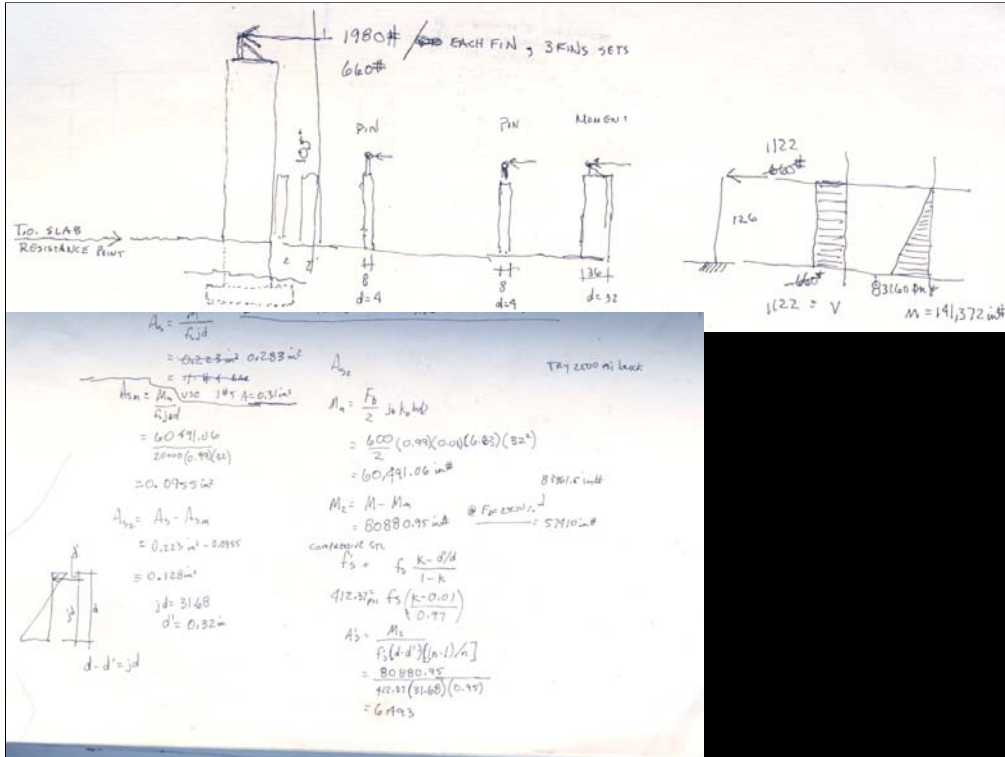 1980# / EACH FIN, 3 FINS SETS
660#
PIN
PIN
MOMENT
T.O. SLAB
RESISTANCE POINT
2
2'
8
d=4
8
d=4
36
d=32
1122
660#
126
660#
1122 = V
83160 in#
M = 141,372 in#
As = M / fsjd
= 0.223 in² 0.283 in²
USE 1#5 A=0.31in²
Asm = Mm / fsjd
= 60491.06 / 20000(0.99)(32)
= 0.0955 in²
As2 = As - Asm
= 0.223 in² - 0.0955
= 0.128 in²
jd = 31.68
d' = 0.32in
d'
jd
d
d-d' = jd
As2
TRY 2500 psi block
Mm = Fb/2 jb kb bd²
= 600/2 (0.99)(0.03)(6.63)(32²)
= 60,491.06 in#
83961.5 in#
M2 = M - Mm
= 80880.95 in#
= 57410 in#
COMPRESSIVE STL
f's = fs k-d'/d / 1-k
412.37 psi fs (k-0.01 / 0.97)
A's = M2 / f's(d-d')[(n-1)/n]
= 80880.95 / 412.37(31.68)(0.95)
= 6.493